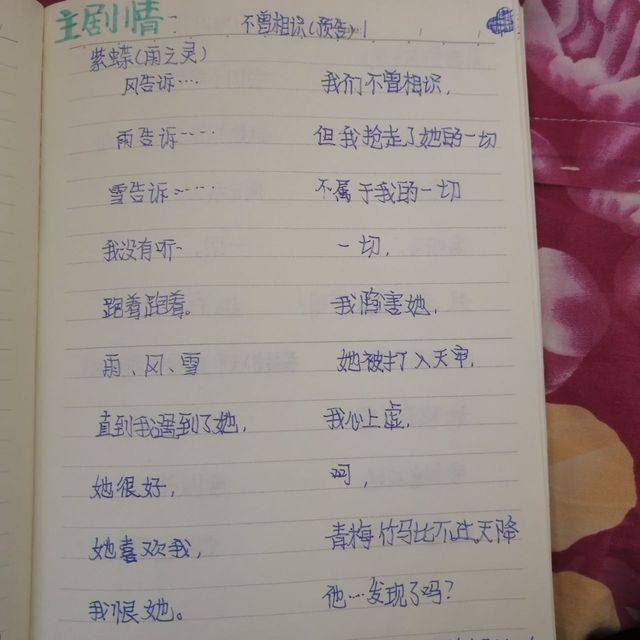 主剧情:
不曾相识(预告)
紫蝶(雨之灵)
风告诉····
雨告诉·····
雪告诉·····
我没有听~
跑着跑着。
雨、风、雪
直到我遇到了她,
她很好,
她喜欢我,
我恨她。
我们不曾相识,
但我抢走了她的一切
不属于我的一切
一切,
我陷害她,
她被打入天牢,
我心上虚,
呵,
青梅竹马比不过天降
他····发现了吗?